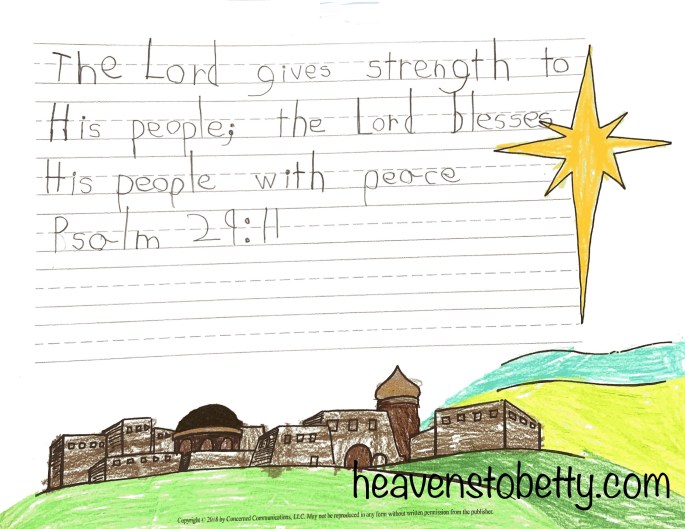 The Lord gives strength to
His people; the Lord blesses
His people with peace
Psalm 29:11
heavenstobetty.com
Copyright © 2018 by Concerned Communications, LLC. May not be reproduced in any form without written permission from the publisher.